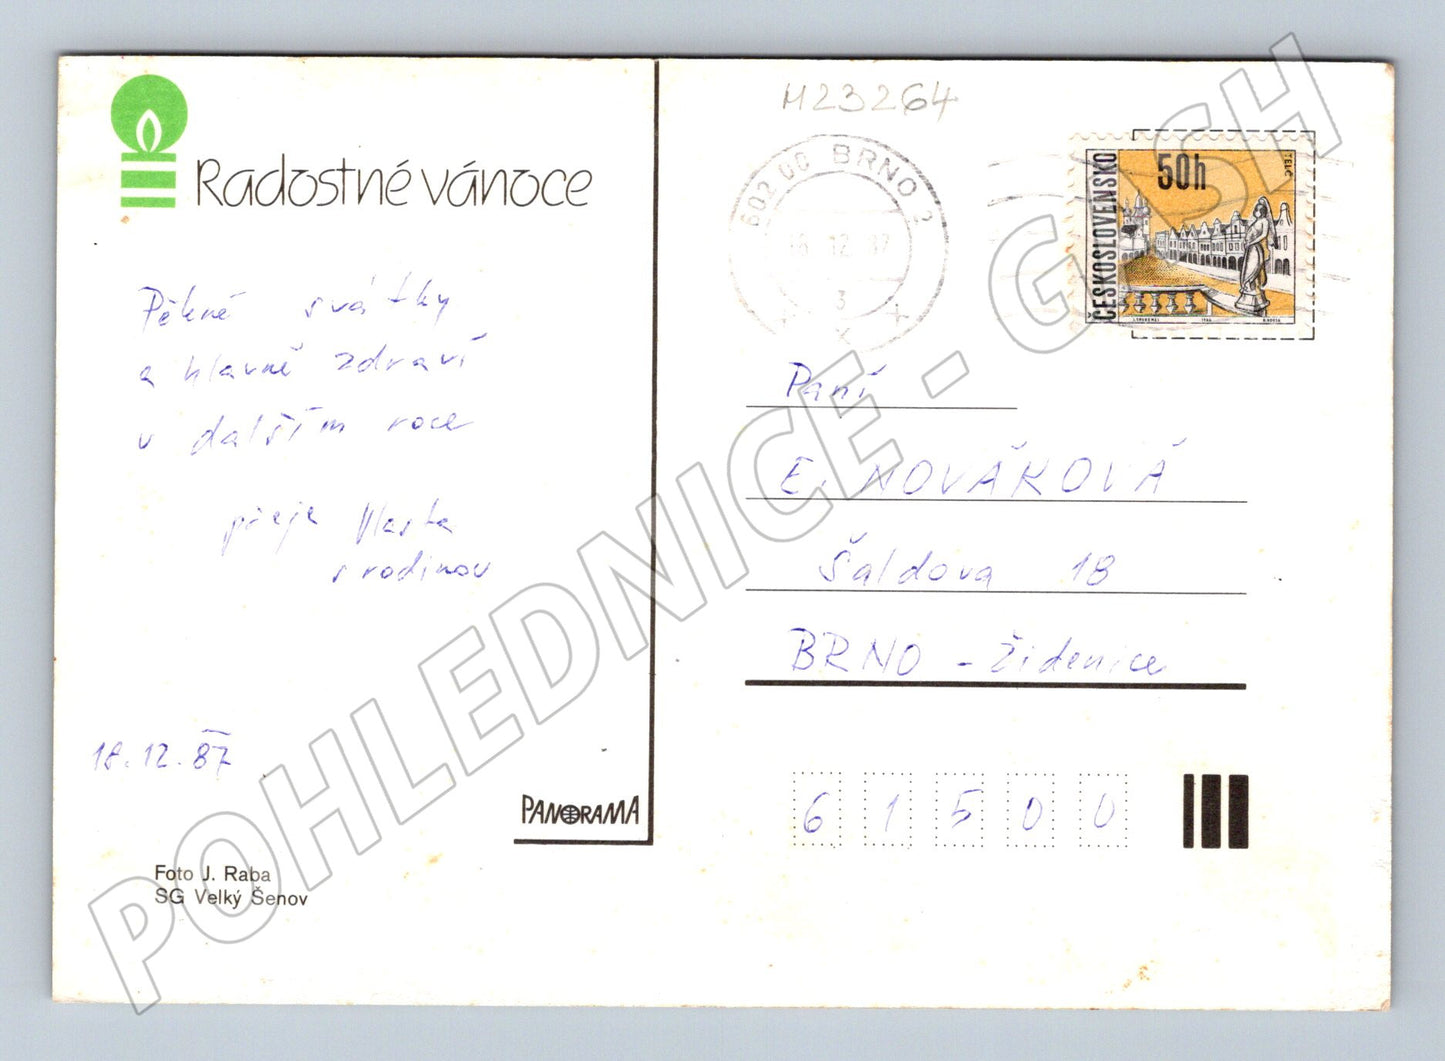 Radostné vánoce
Pěkné svátky
a hlavně zdraví
v dalším roce
přeje Vlasta
s rodinou
18.12.87
PANORAMA
Foto J. Raba
SG Velký Šenov
M23264
602 00 BRNO 2
12 87
3
ČESKOSLOVENSKO
50h
TELČ
1966
Paní
E. NOVÁKOVÁ
Šaldova 18
BRNO - Židenice
6 1 5 0 0
POHLEDNICE - GASH